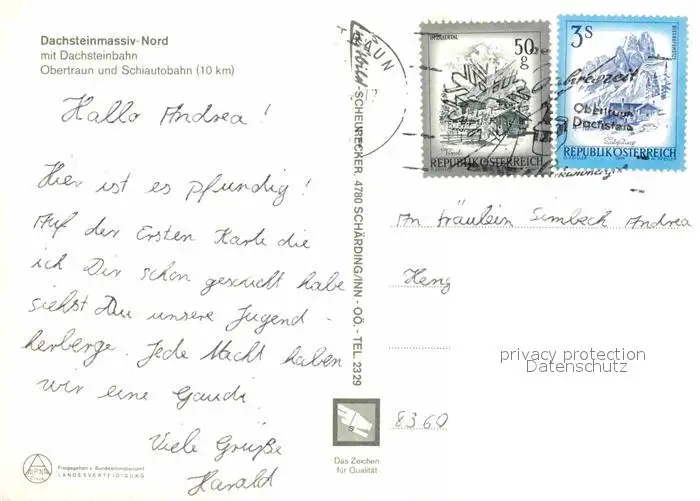 Dachsteinmassiv-Nord
mit Dachsteinbahn
Obertraun und Schiautobahn (10 km)
Hallo Andrea!
Hier ist es pfundig!
Auf der Ersten Karte die
ich Dir schon geschickt habe
siehst Du unsere Jugend-
herberge. Jede Nacht haben
wir eine Gaudi
Viele Grüße
Harald
ALPINA
Freigegeben v. Bundesministerium f.
LANDESVERTEIDIGUNG
SCHEURECKER, 4780 SCHÄRDING/INN - OÖ. - TEL. 2329
Das Zeichen
für Qualität
50 g
REPUBLIK ÖSTERREICH
3 S
REPUBLIK ÖSTERREICH
Obertraun
Dachstein
An Fräulein Simbeck Andrea
Heng
privacy protection
Datenschutz
8360